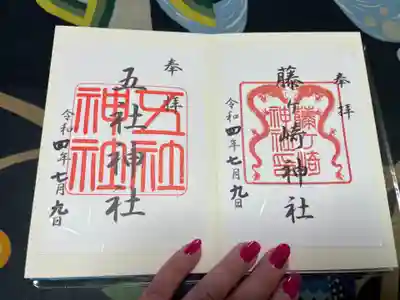 奉拝
藤ヶ崎神社
令和四年七月九日
藤ヶ崎
神社
奉拝
五社神社
令和四年七月九日
五社
神社